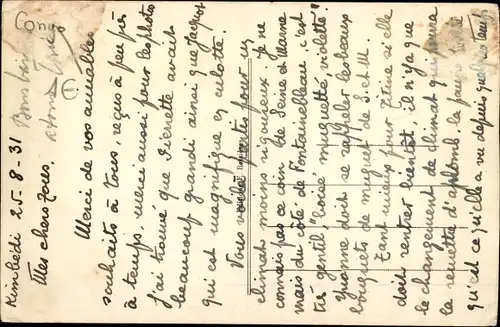 Kimbedi 25-8-31
Mes chers tous.
Merci de vos aimables
souhaits à tous, reçus à peu près
à temps, merci aussi pour les photos
J'ai trouvé que Pierrette avait
beaucoup grandi ainsi que Jacques
qui est magnifique en culotte.
Vous voilà partis pour un
climat moins rigoureux. Je ne
connais pas ce coin de Seine et Marne
mais du côté de Fontainebleau, c'est
très gentil, boisé muguetté, violetté"
Yvonne doit se rappeler les beaux
bouquets de muguet de S. et M.
Tant mieux pour Titine si elle
doit rentrer bientôt. Il n'y a que
le changement de climat qui pourra
la remettre d'aplomb. la pauvre
qu'est ce qu'elle a vu depuis quelque temps
Bons baisers